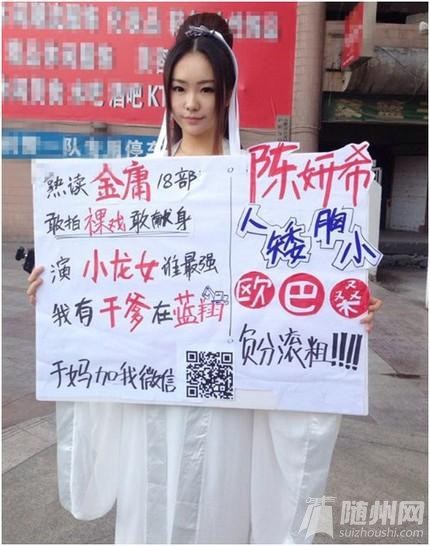 酒吧 KT
队专用停车
熟读金庸18部
敢拍裸戏敢献身
演小龙女谁最强
我有干爹在蓝翔
于妈加我微信
陈妍希
人矮胸小
欧巴桑
负分滚粗!!!!
随州网
suizhoushi.com